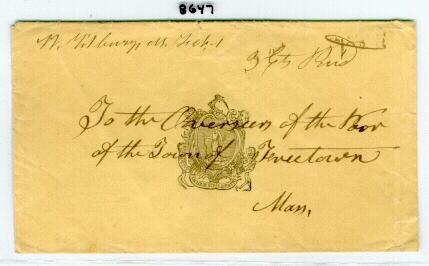 8647
W. Tisbury, Ms. Feb. 1
3 Cts Paid
To the Overseers of the Poor
of the Town of Freetown
Mass,